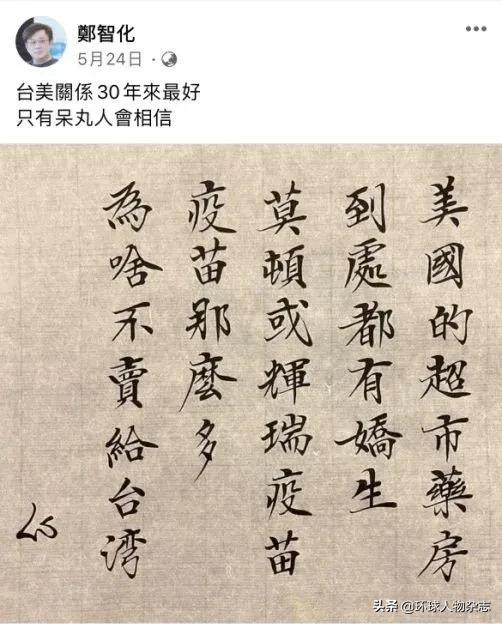 鄭智化
5月24日
台美關係30年來最好
只有呆丸人會相信
美國的超市藥房
到處都有嬌生
莫頓或輝瑞疫苗
疫苗那麼多
為啥不賣給台湾
头条 @环球人物杂志